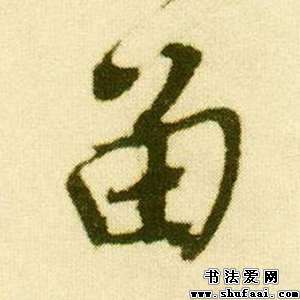 留
书法爱网
www.shufaai.com